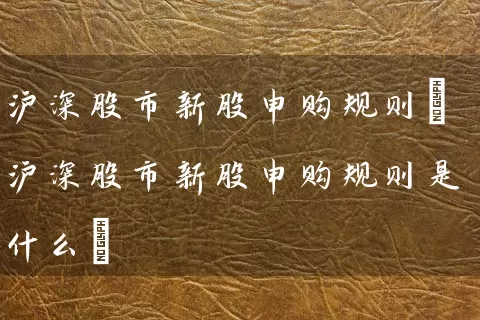 沪深股市新股申购规则
沪深股市新股申购规则是
什么